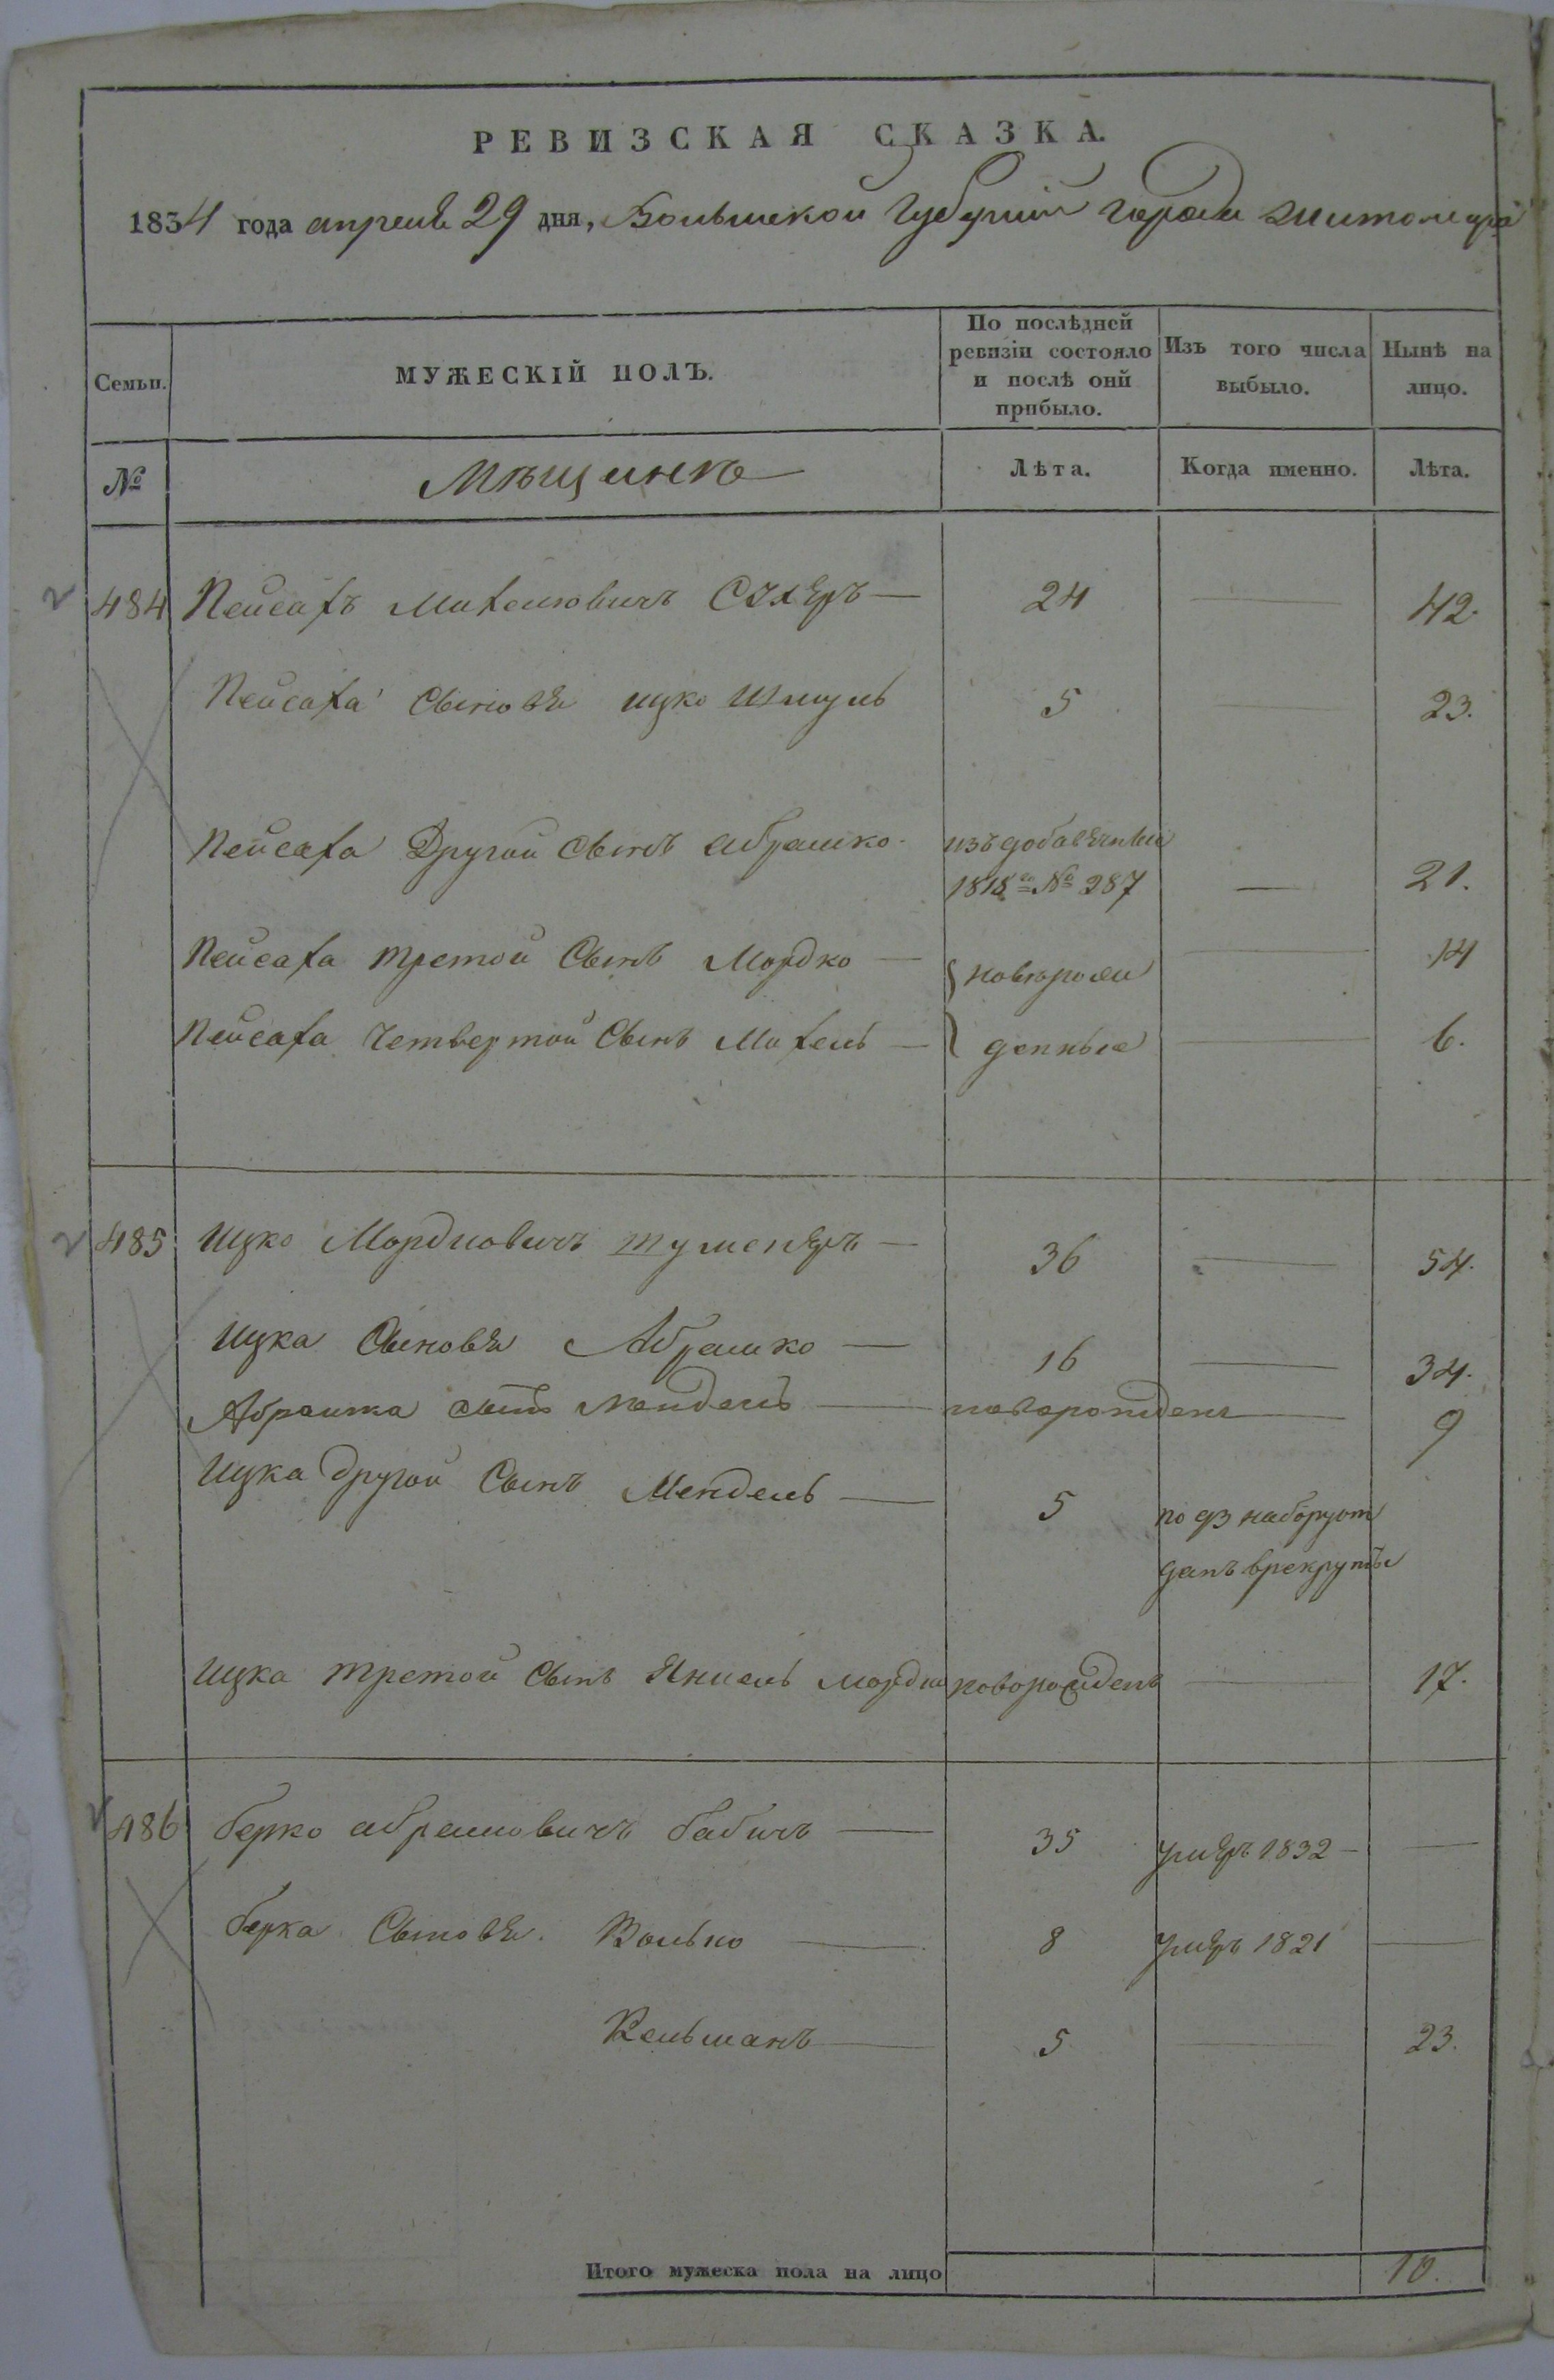 РЕВИЗСКАЯ СКАЗКА.
1834 года апреля 29 дня, Волынской Губернии города Житомира
Семьи.
МУЖЕСКІЙ ПОЛЪ.
По послѣдней ревизіи состояло и послѣ оній прибыло.
Изъ того числа выбыло.
Нынѣ на лицо.
№
Мѣщинъ
Лѣта.
Когда именно.
Лѣта.
484 Пейсахъ Михелювичъ 24 — 42.
Пейсаха Сыновя ицко Шмуль 5 — 23.
Пейсаха Другой Сынъ абрамко изъ добавочныи
1818го № 287 — 21.
Пейсаха третой Сынъ Мордко — новорож — 14
Пейсаха Четвертой Сынъ Михель — денные — 6.
485 Ицко Мордковичъ — 36 — 54.
Ицка Сыновя Абрамко — 16 — 34.
Абрамка сынъ Мендель — новорожденъ — 9
Ицка другой Сынъ Мендель — 5 по 93 наборуот
данъ врекруты
Ицка третой Сынъ Янкель мордко новорожденъ — 17.
486 берко абрамовичъ бабичъ — 35 умеръ 1832 — —
берка Сыновя. Волько — 8 умеръ 1821 —
Кельманъ — 5 — 23.
Итого мужеска пола на лицо 10.